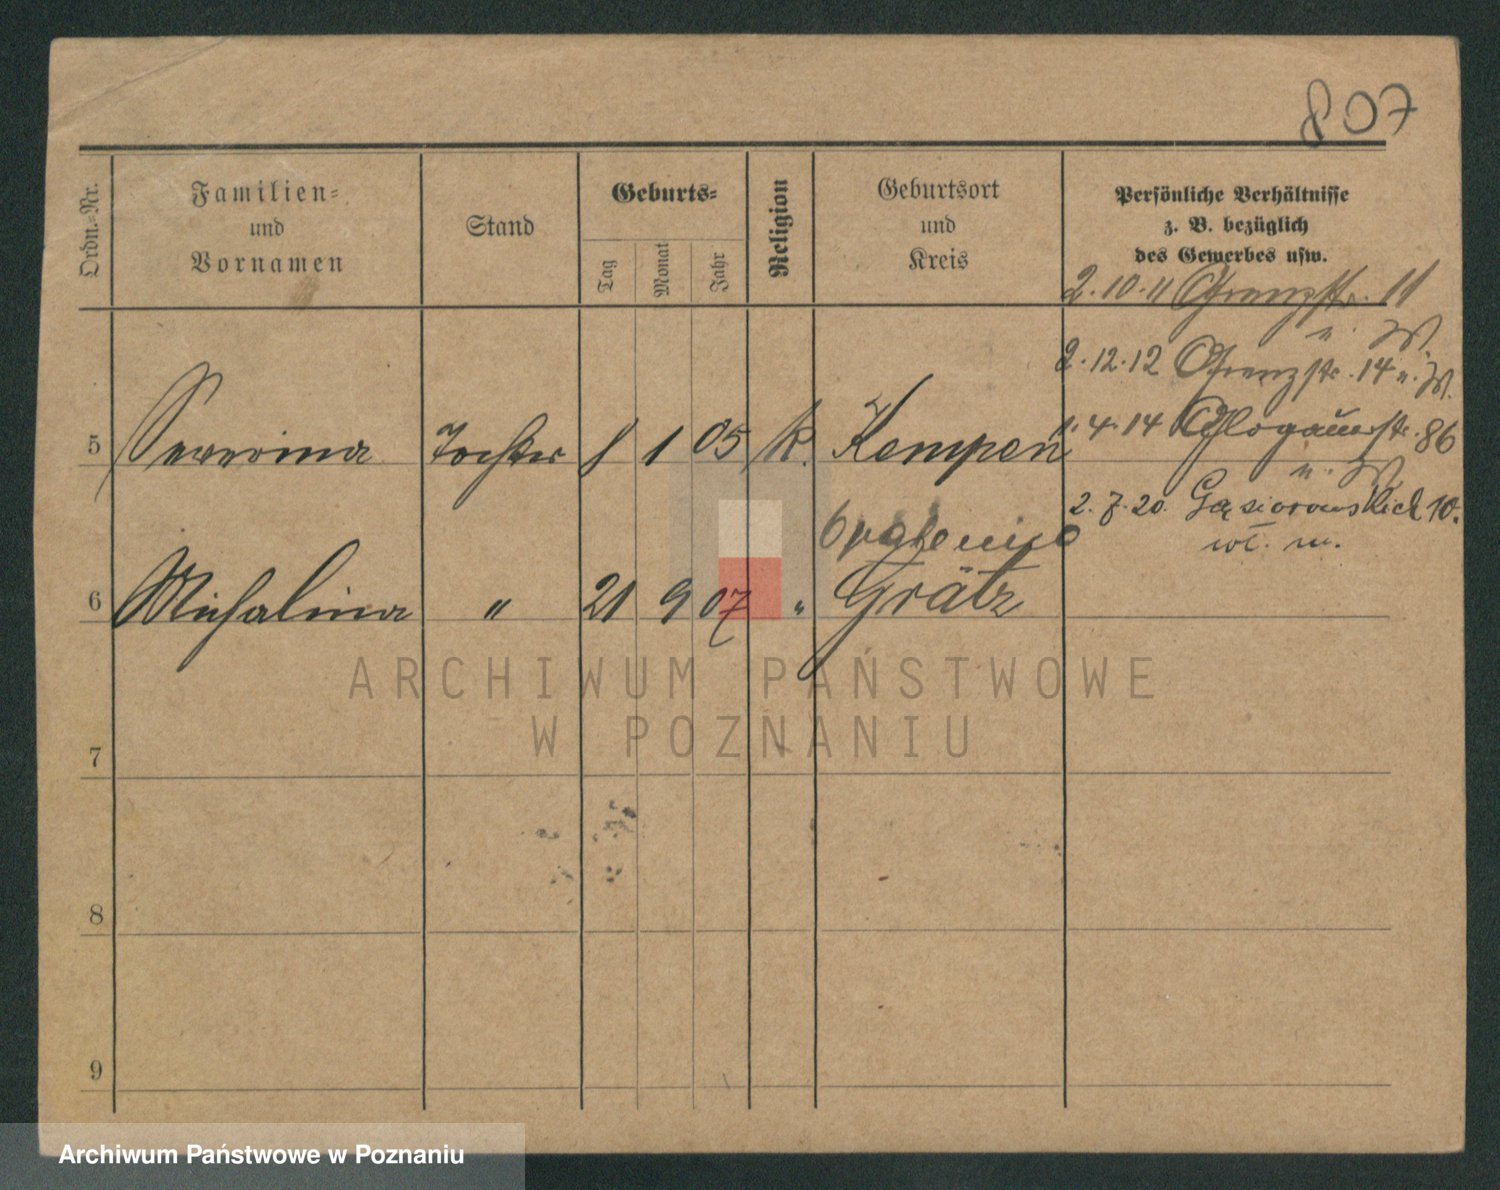 807
Ordn.-Nr.
Familien-
und
Vornamen
Stand
Geburts-
Tag
Monat
Jahr
Religion
Geburtsort
und
Kreis
Persönliche Verhältnisse
z. B. bezüglich
des Gewerbes usw.
2.10.11 Grenzstr. 11
u. W.
2.12.12 Grenzstr. 14 u. W.
5 Severina Tochter 8 1 05 k. Kempen
1.4.14 Glogauerstr. 86
u. W.
2.7.20 Gąsiorowskich 10.
wł. m.
Opalenica
6 Michalina " 21 9 07 " Grätz
ARCHIWUM PAŃSTWOWE
W POZNANIU
7
8
9
Archiwum Państwowe w Poznaniu